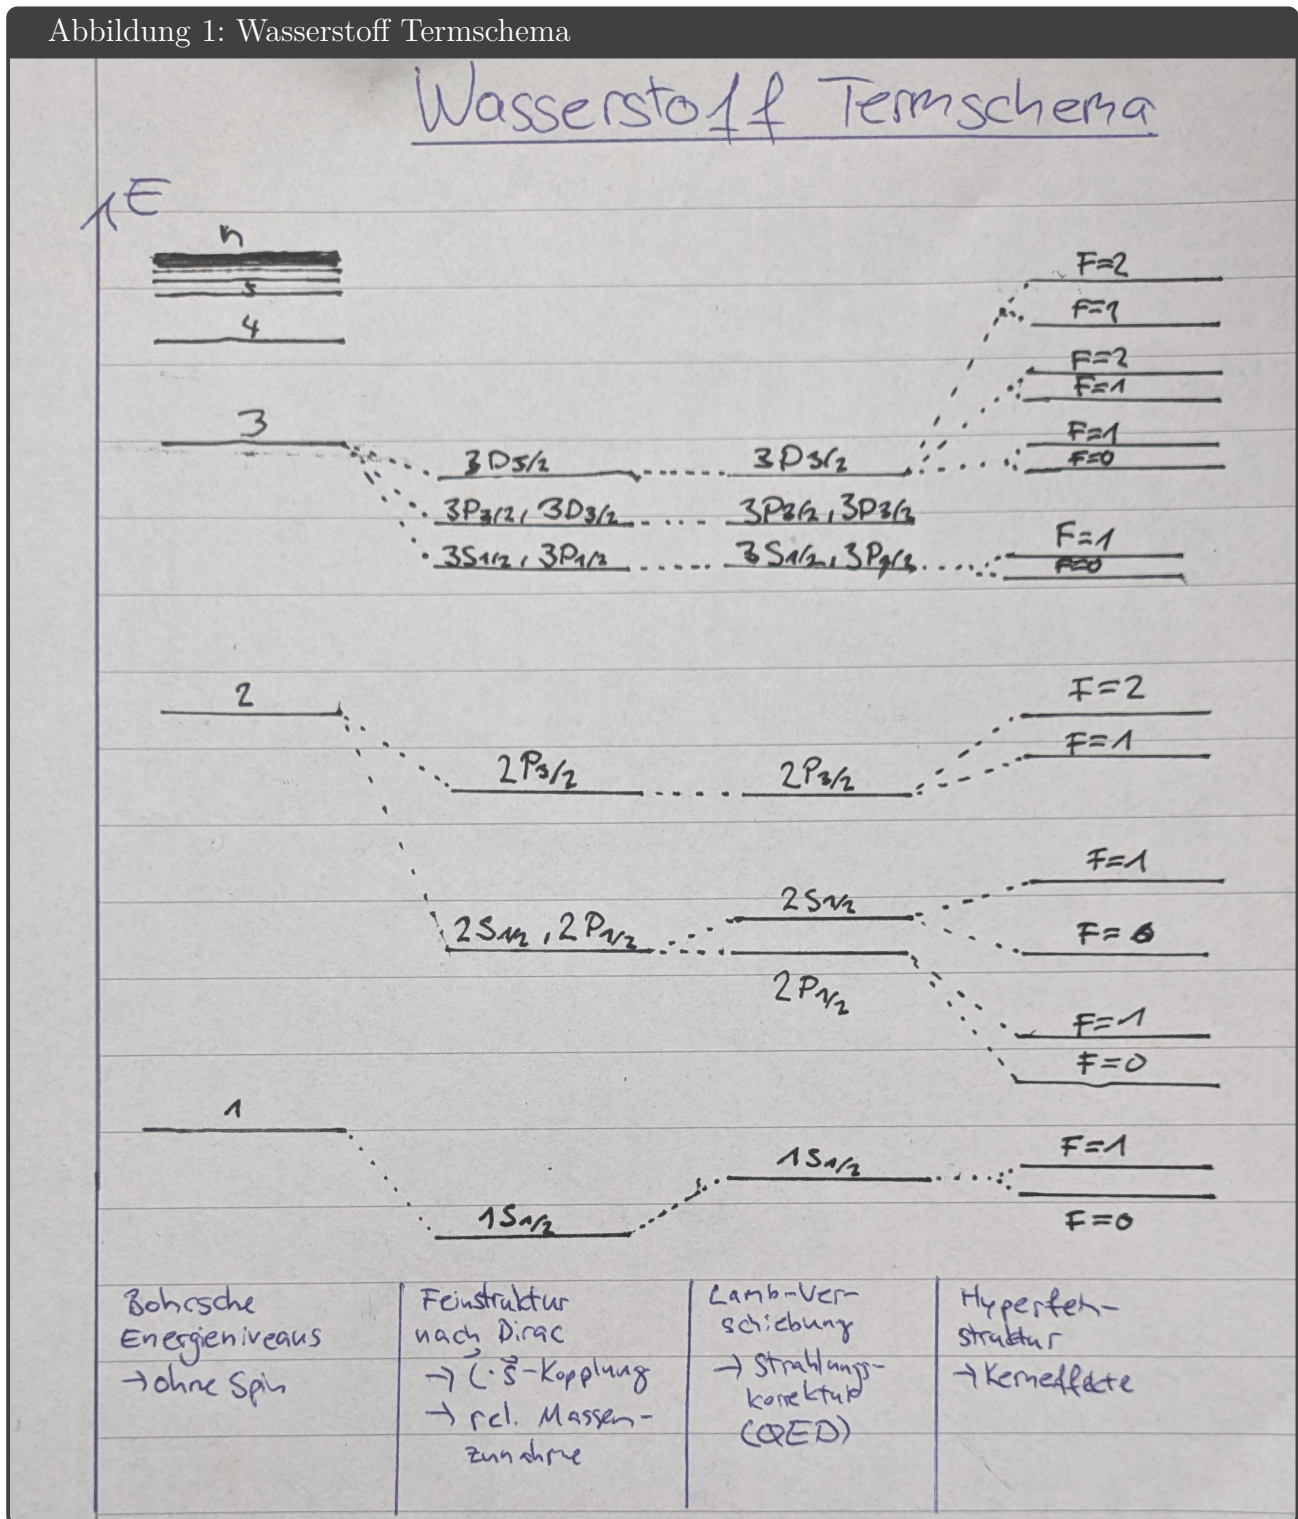 Abbildung 1: Wasserstoff Termschema
Wasserstoff Termschema
E
n
5
4
3
3D5/2
3P3/2, 3D3/2
3S1/2, 3P1/2
3D3/2
3P3/2, 3D3/2
3S1/2, 3P1/2
F=2
F=1
F=2
F=1
F=1
F=0
F=1
F=0
2
2P3/2
2P3/2
F=2
F=1
2S1/2, 2P1/2
2S1/2
2P1/2
F=1
F=0
F=1
F=0
1
1S1/2
1S1/2
F=1
F=0
Bohrsche
Energieniveaus
→ ohne Spin
Feinstruktur
nach Dirac
→ l⃗·s⃗-Kopplung
→ rel. Massen-
zunahme
Lamb-Ver-
schiebung
→ Strahlungs-
korrektur
(QED)
Hyperfein-
struktur
→ Kerneffekte